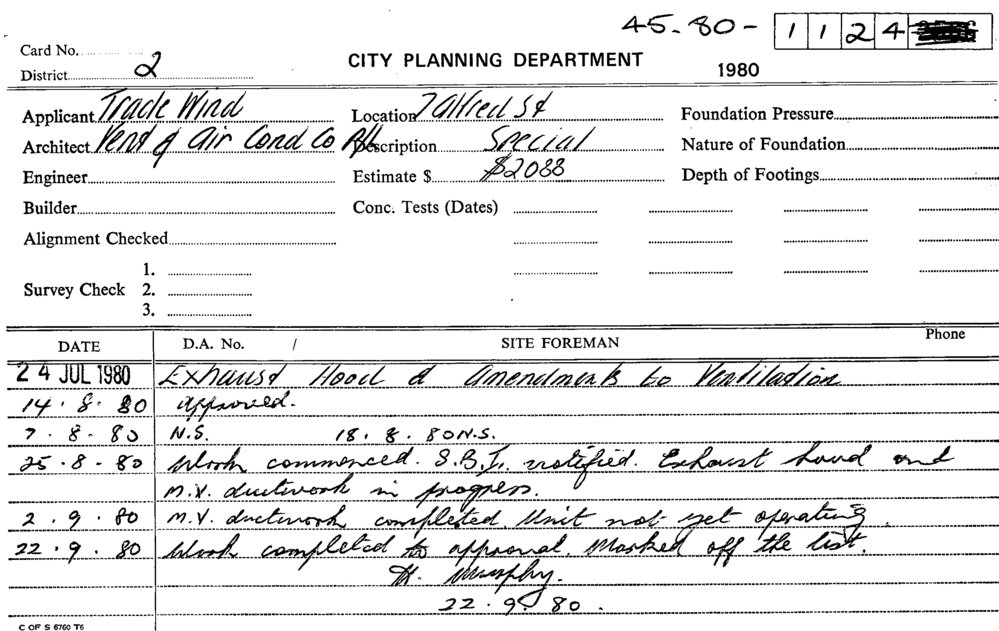 45-80- 1124
Card No.
District 2
CITY PLANNING DEPARTMENT
1980
Applicant Trade Wind
Location 7 Alfred St
Foundation Pressure
Architect Vent & Air Cond Co P/L
Description Special
Nature of Foundation
Engineer
Estimate $ $2088
Depth of Footings
Builder
Conc. Tests (Dates)
Alignment Checked
1.
Survey Check 2.
3.
DATE D.A. No. / SITE FOREMAN Phone
24 JUL 1980 Exhaust Hood & Amendments to Ventilation
14.8.80 approved.
7.8.80 N.S. 18.8.80 N.S.
25.8.80 Work commenced. S.B.I. notified. Exhaust hood and
M.V. ductwork in progress.
2.9.80 M.V. ductwork completed. Unit not yet operating.
22.9.80 Work completed to approval. Marked off the list.
H. Murphy.
22.9.80.
C OF S 6760 T6